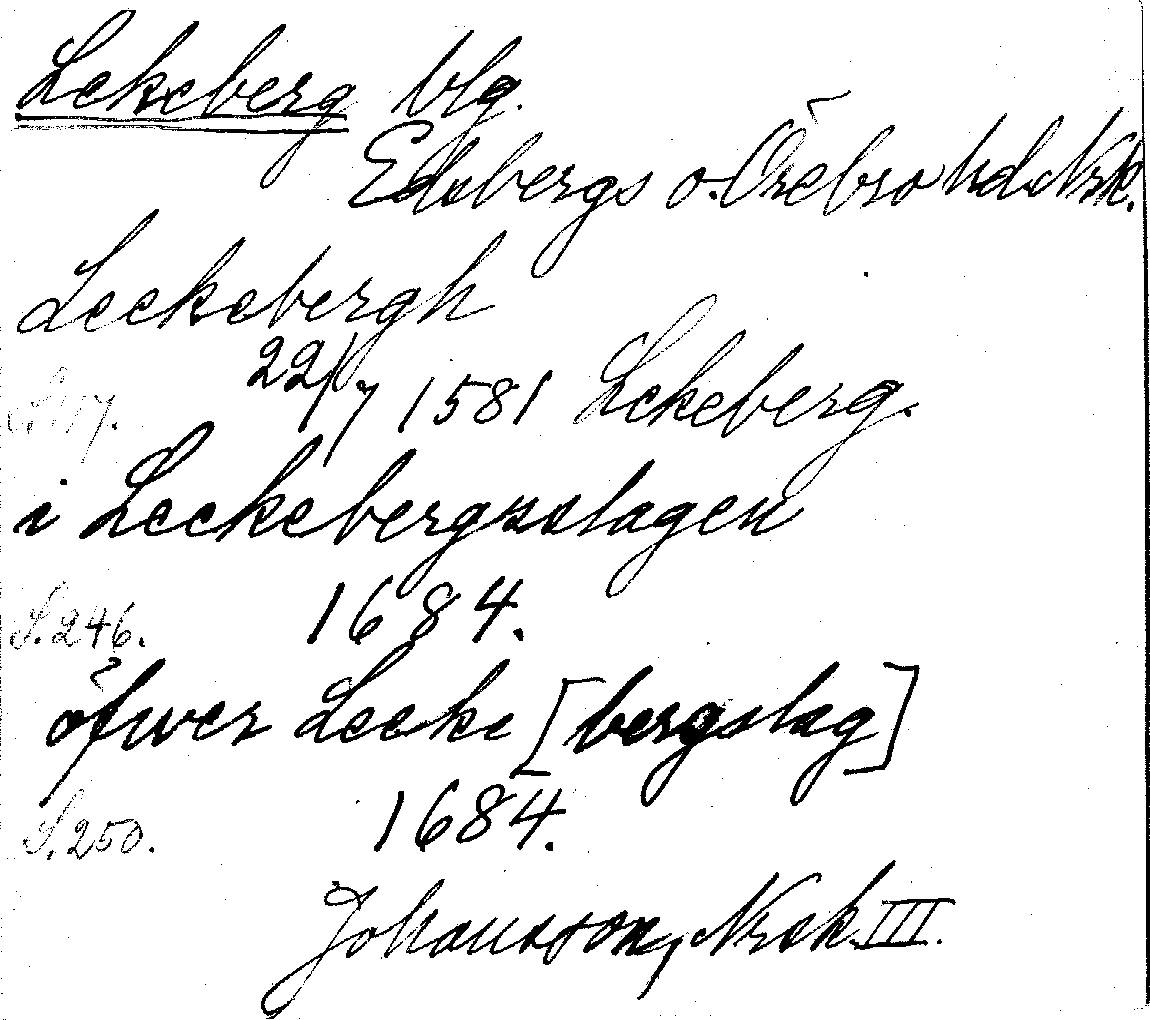 Lekeberg blg.
Edsbergs o. Örebro hd. Nrk.
Leekebergh
22/7 1581 Lekeberg.
i Leekebergsslagen
S. 246. 1684.
öfwer Leeke [bergslag]
S. 250. 1684.
Johansson, Nrck. III.